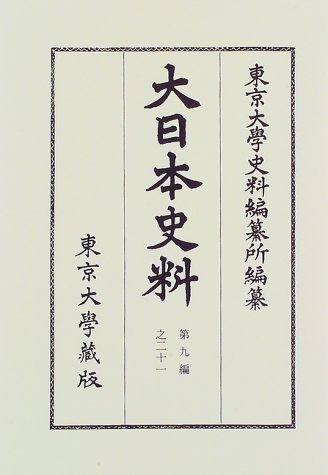 東京大學史料編纂所編纂
大日本史料
第九編
之二十一
東京大學藏版